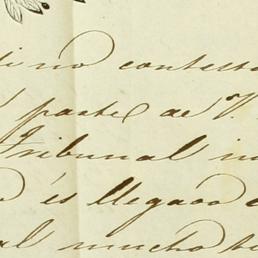 no contesta
parte de V.
Tribunal in
es llegado
al mucho